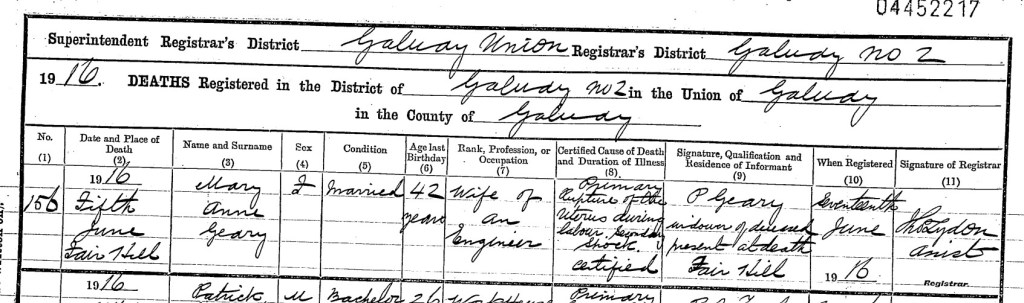 04452217
Superintendent Registrar's District Galway Union Registrar's District Galway No 2
1916. DEATHS Registered in the District of Galway No 2 in the Union of Galway
in the County of Galway
No. (1) Date and Place of Death (2) Name and Surname (3) Sex (4) Condition (5) Age last Birthday (6) Rank, Profession, or Occupation (7) Certified Cause of Death and Duration of Illness (8) Signature, Qualification and Residence of Informant (9) When Registered (10) Signature of Registrar (11)
156 1916 Fifth June Fair Hill Mary Anne Geary F Married 42 years Wife of an Engineer Primary Rupture of the Uterus during labour Shock. Certified P Geary widower of deceased present at death Fair Hill Seventeenth June 1916 Lydon Assist Registrar.
1916 Patrick M Bachelor 26 Primary